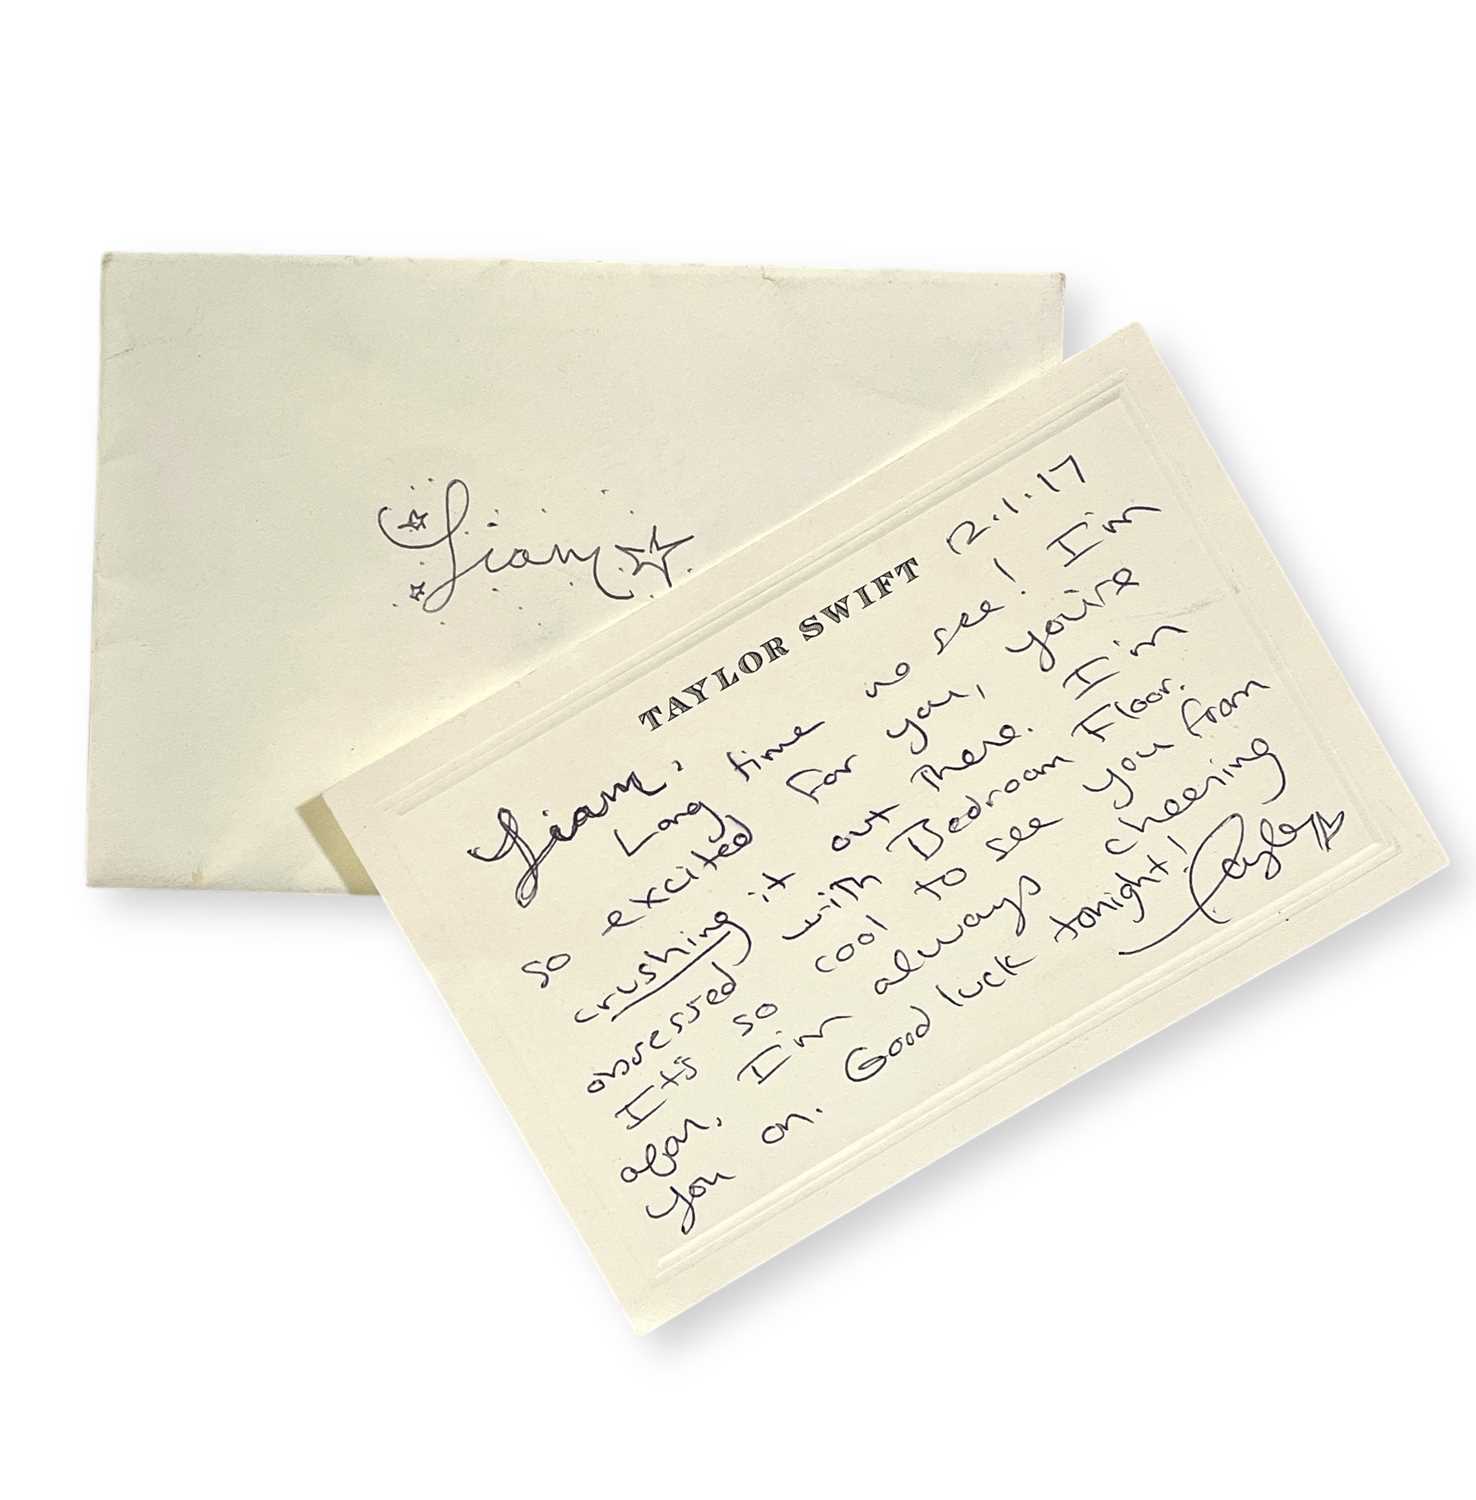 Liam
TAYLOR SWIFT
12.1.17
Liam,
Long time no see! I'm
so excited for you, you're
crushing it out there. I'm
obsessed with Bedroom Floor.
It's so cool to see you from
afar, I'm always cheering
you on. Good luck tonight!
Taylor